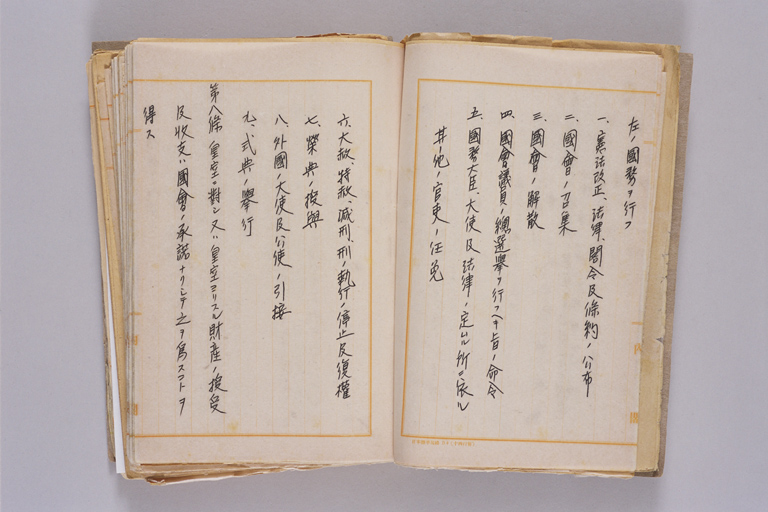 左ノ國務ヲ行フ
一、憲法改正、法律、閣令及條約ノ公布
二、國會ノ召集
三、國會ノ解散
四、國會議員ノ總選擧ヲ行フヘキ旨ノ命令
五、國務大臣、大使及法律ノ定ムル所ニ依ル
其ノ他ノ官吏ノ任免
六、大赦、特赦、減刑、刑ノ執行ノ停止及復權
七、榮典ノ授與
八、外國ノ大使及公使ノ引接
九、式典ノ擧行
第八條 皇室ニ對シ又ハ皇室ヨリスル財産ノ授受
及收支ハ國會ノ承諾ナクシテ之ヲ爲スコトヲ
得ス